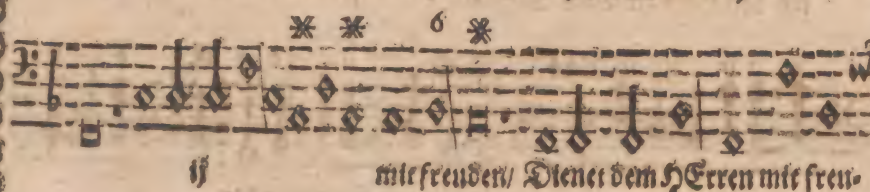 6
ij mit freuden/ Dienet dem HErren mit freu-